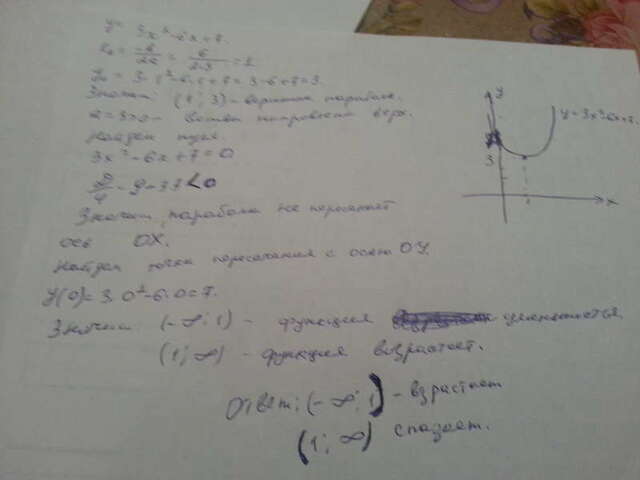 y = 3x²-6x+7.
x₀ = -b/2a = 6/2·3 = 1
y₀ = 3·1²-6·1+7 = 3-6+7=3.
Значит (1; 3) - вершина параболы.
a=3>0 - ветви направлены вверх.
Найдем нули.
3x²-6x+7=0
D/4 = 9-3·7<0
Значит парабола не пересекает
ось OX.
Найдем точки пересечения с осью OY.
y(0)=3·0²-6·0=7.
Значит (-∞; 1) - функция уменьшается
(1; ∞) - функция возрастает.
Ответ: (-∞; 1) - взрастает
(1; ∞) спадает.
y
y=3x²-6x+7.
3
x